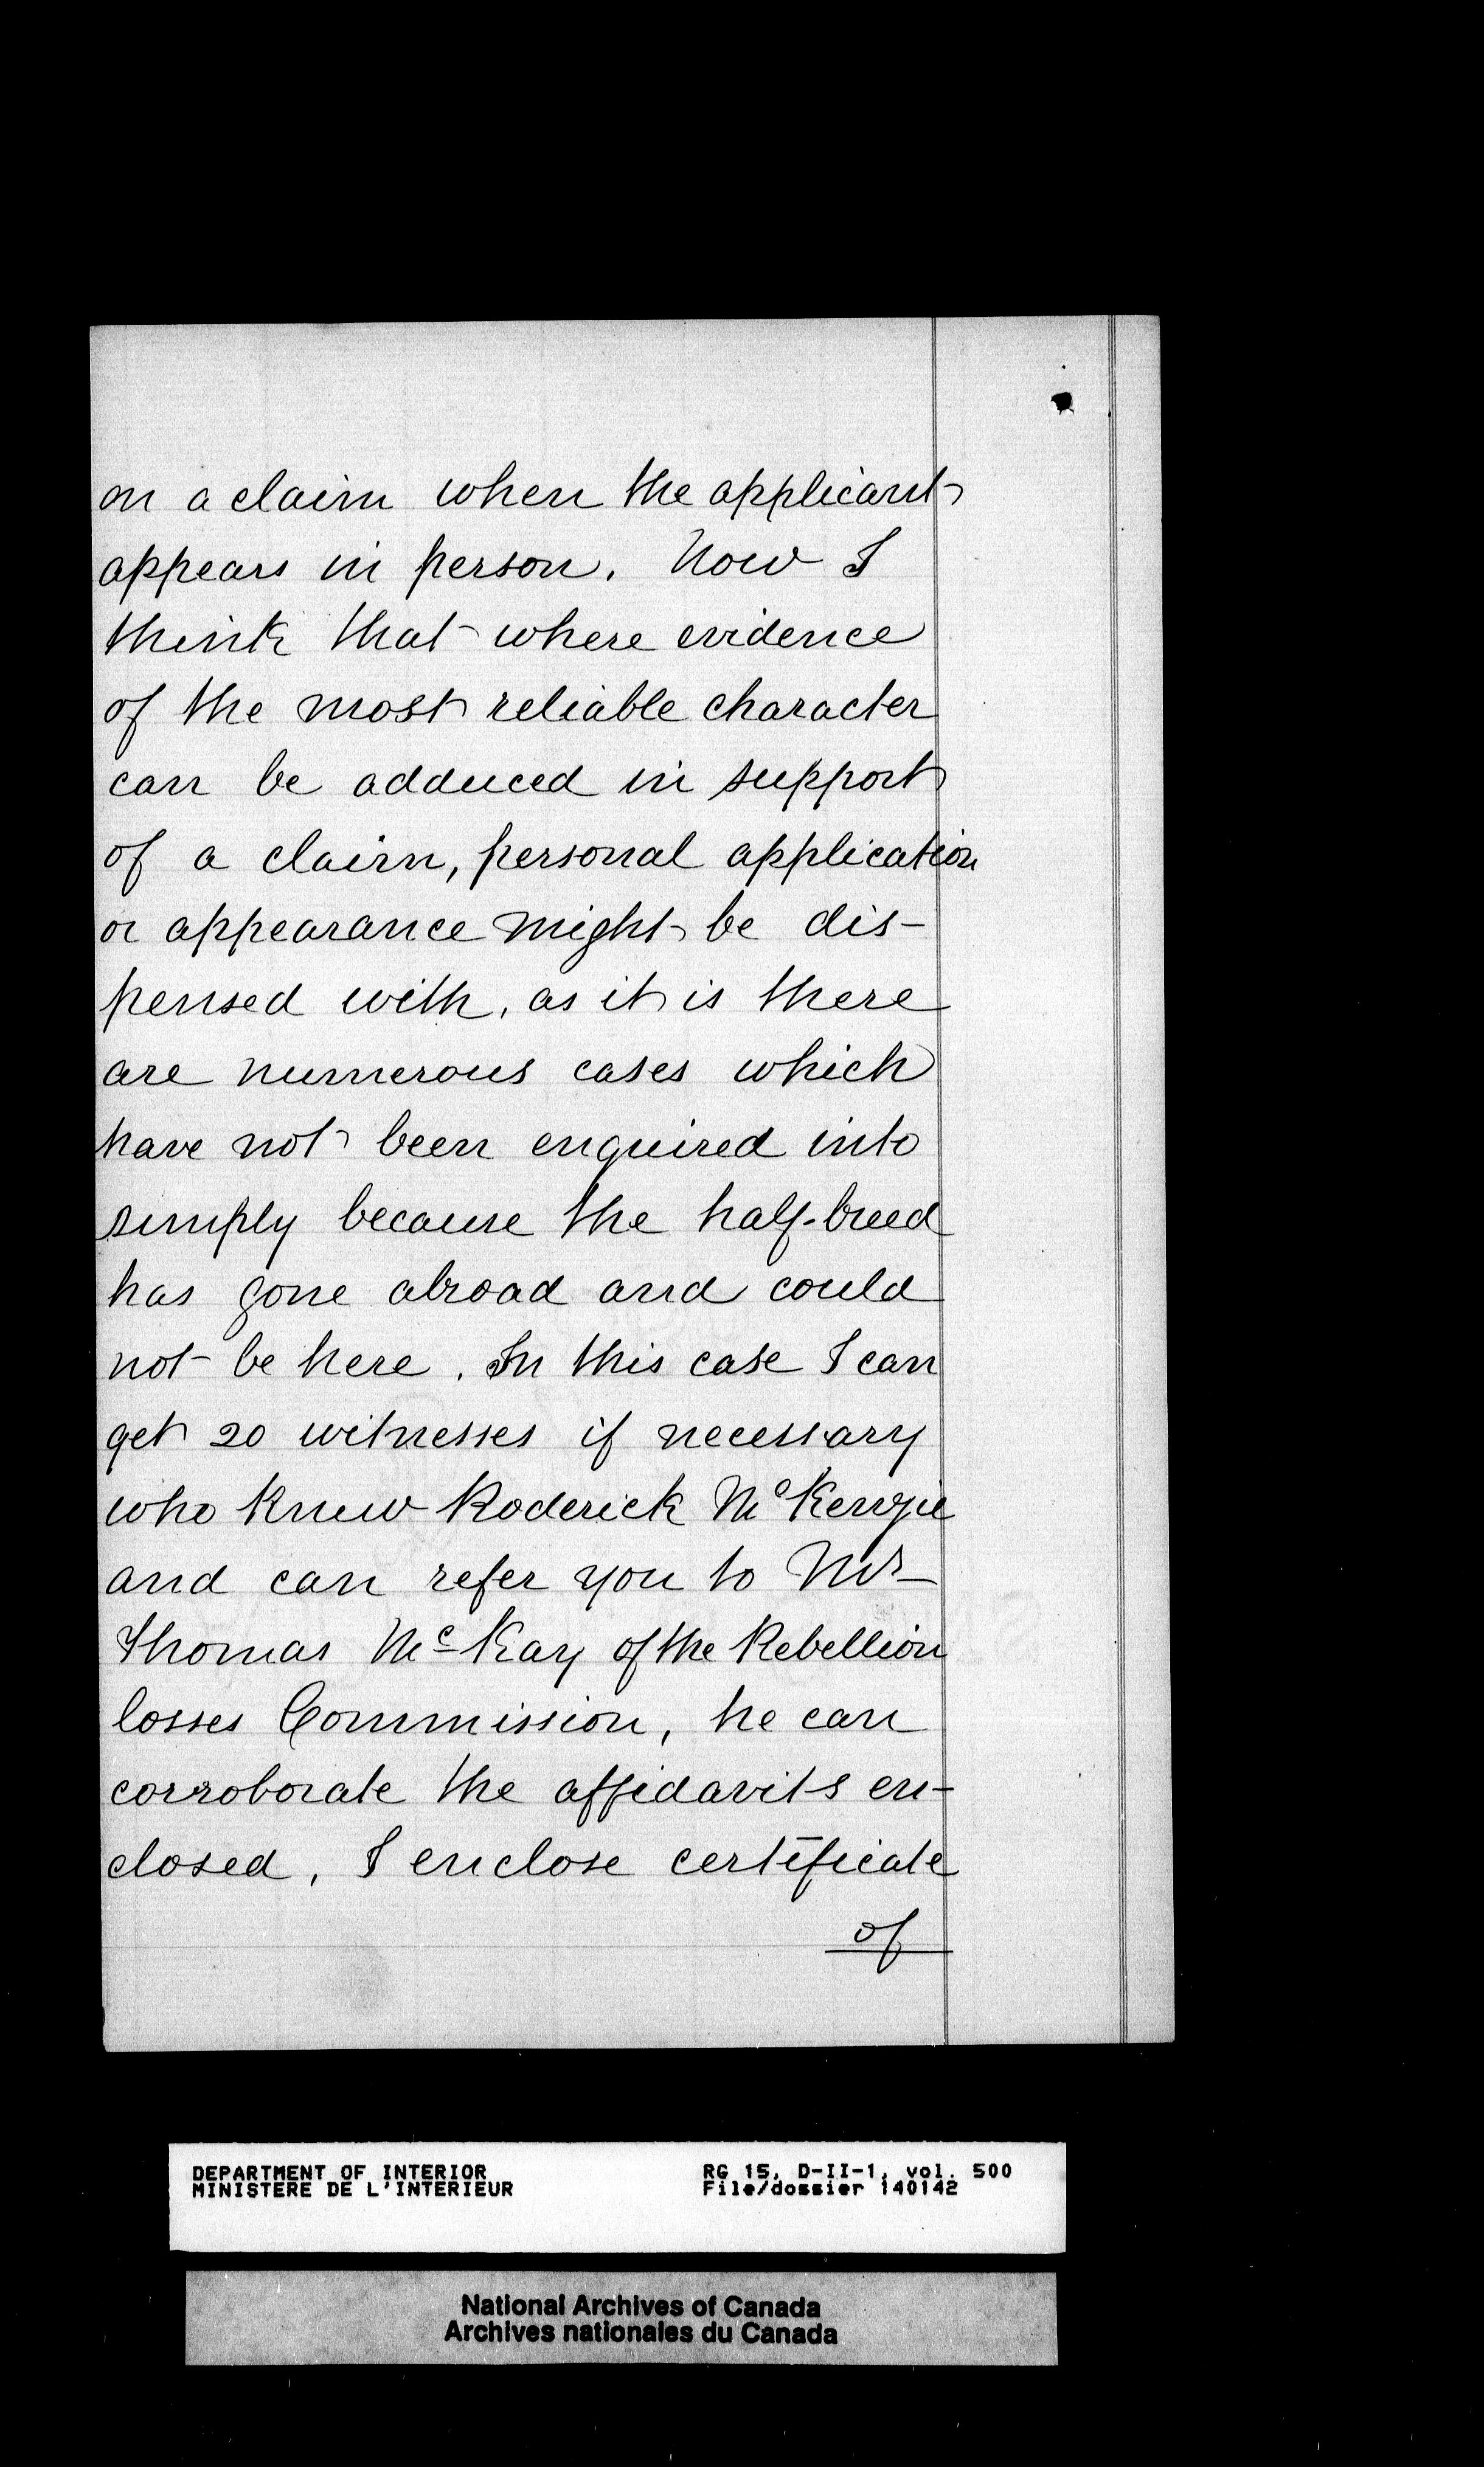 on a claim when the applicant
appears in person. Now I
think that where evidence
of the most reliable character
can be adduced in support
of a claim, personal application
or appearance might be dis-
pensed with, as it is there
are numerous cases which
have not been enquired into
simply because the half-breed
has gone abroad and could
not be here. In this case I can
get 20 witnesses if necessary
who knew Roderick McKenzie
and can refer you to Mr
Thomas McKay of the Rebellion
losses Commission, he can
corroborate the affidavits en-
closed, I enclose certificate
of
DEPARTMENT OF INTERIOR
MINISTERE DE L'INTERIEUR
RG 15, D-II-1, vol. 500
File/dossier 140142
National Archives of Canada
Archives nationales du Canada